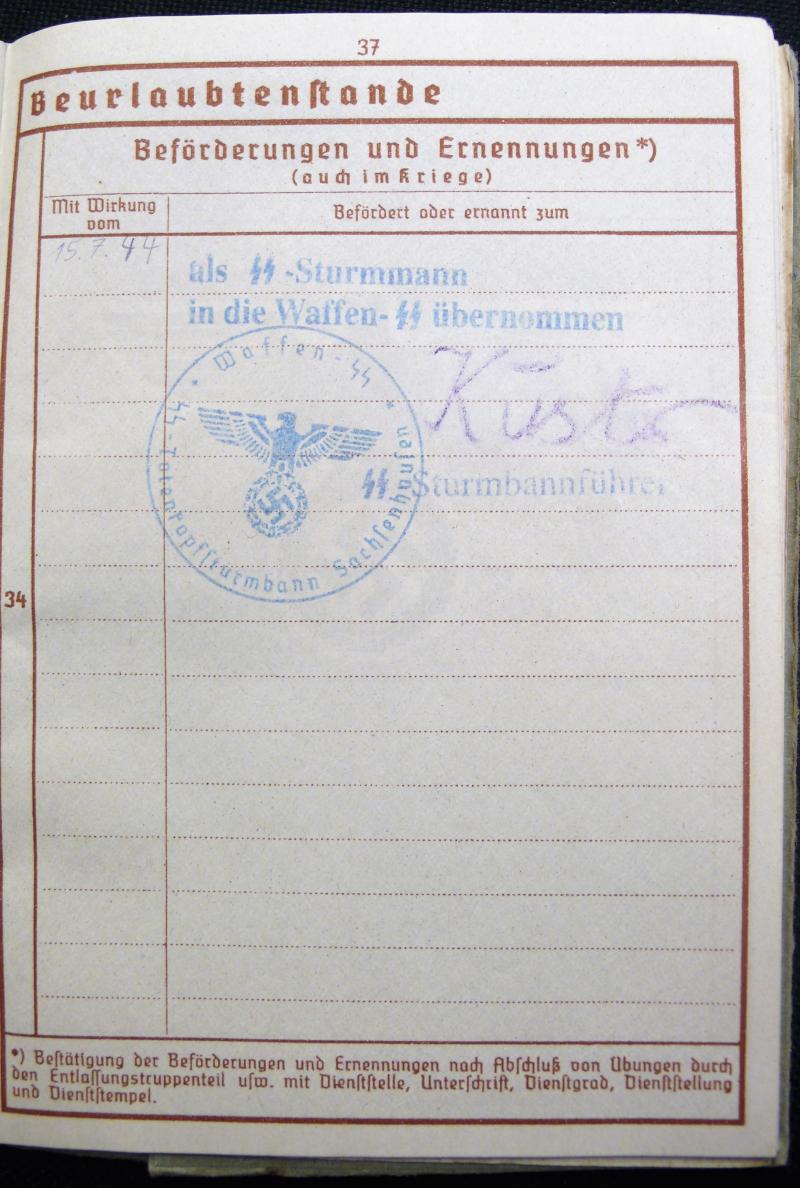 37
Beurlaubtenstande
Beförderungen und Ernennungen*)
(auch im Kriege)
Mit Wirkung
vom
Befördert oder ernannt zum
15.7.44
als ᛋᛋ-Sturmmann
in die Waffen-ᛋᛋ übernommen
* Waffen-ᛋᛋ *
ᛋᛋ-Totenkopfsturmbann Sachsenhausen
ᛋᛋ-Sturmbannführer
34
*) Bestätigung der Beförderungen und Ernennungen nach Abschluß von Übungen durch
den Entlassungstruppenteil usw. mit Dienststelle, Unterschrift, Dienstgrad, Dienststellung
und Dienststempel.